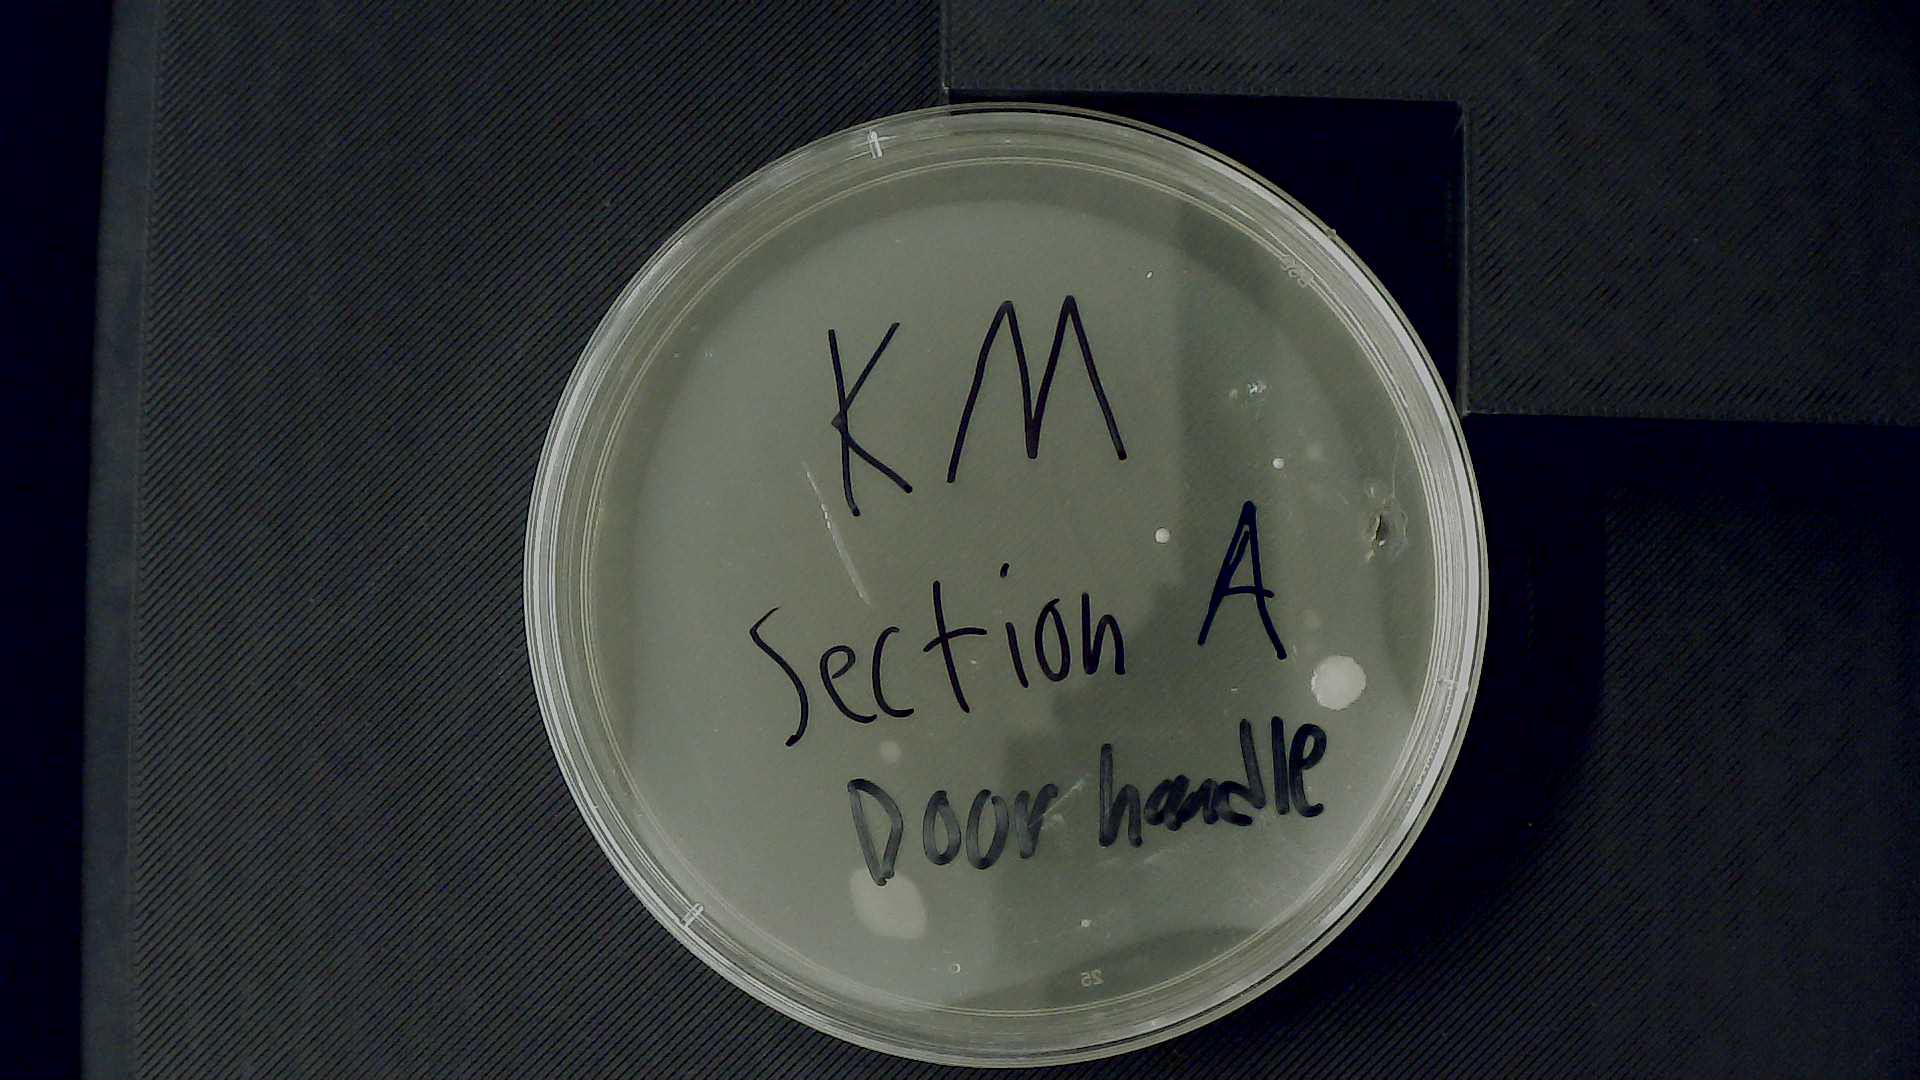 KM
Section A
Door handle
25